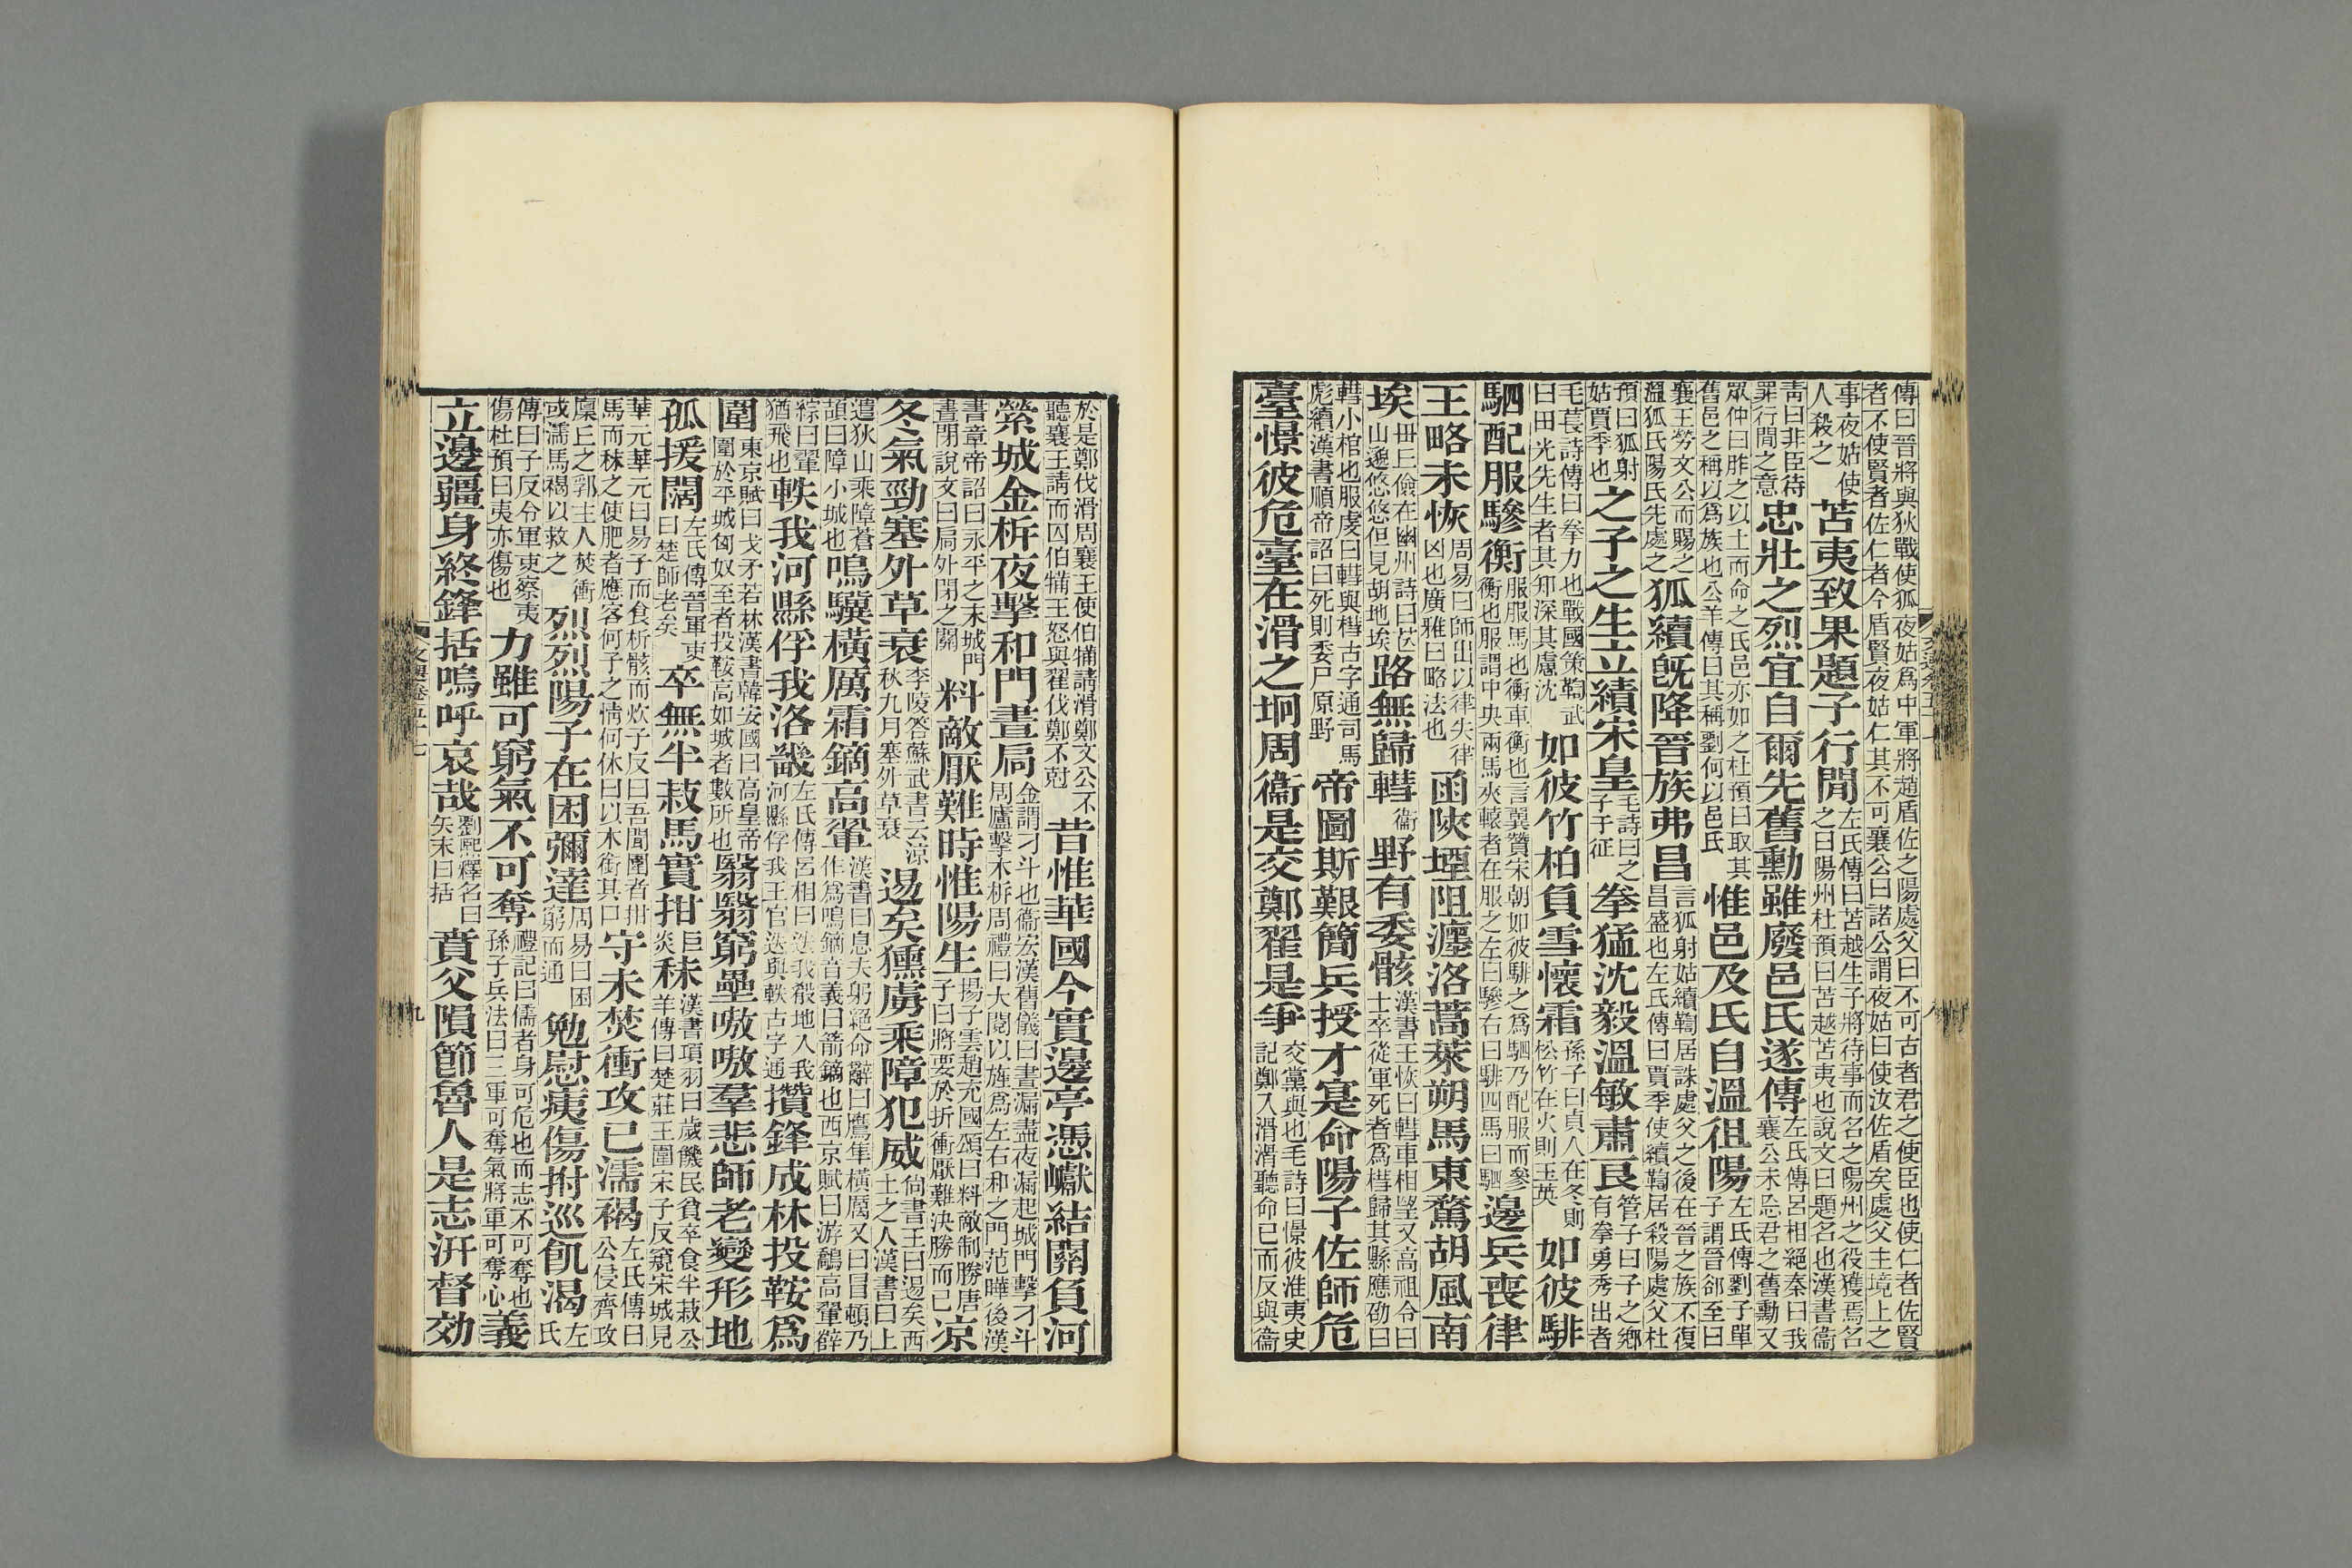 傳曰晉將與狄戰使狐夜姑爲中軍將趙盾佐之陽處父曰不可古者君之使臣也使仁者佐賢
者不使賢者佐仁者今盾賢夜姑仁其不可襄公曰諾公謂夜姑曰使汝佐盾矣處父主境上之
事夜姑使人殺之苫夷致果題子行閒左氏傳曰苫越生子將待事而名之陽州之役獲焉名之曰陽州杜預曰苫越苫夷也說文曰題名也漢書衞
靑曰非臣待罪行閒之意忠壯之烈宜自爾先舊勳雖廢邑氏遂傳左氏傳呂相絕秦曰我襄公未忘君之舊勳又
眾仲曰胙之以土而命之氏邑亦如之杜預曰取其舊邑之稱以爲族也公羊傳曰其稱劉何以邑氏惟邑及氏自溫徂陽左氏傳劉子單子謂晉郤至曰
襄王勞文公而賜之溫狐氏陽氏先處之狐續旣降晉族弗昌言狐射姑續鞫居誅處父之後在晉之族不復昌盛也左氏傳曰賈季使續鞫居殺陽處父杜
預曰狐射姑賈季也之子之生立績宋皇毛詩曰之子子征拳猛沈毅溫敏肅良管子曰子之鄉有拳勇秀出者
毛萇詩傳曰拳力也戰國策鞫武曰田光先生者其知深其慮沈如彼竹柏負雪懷霜孫子曰貞人在冬則松竹在火則玉英如彼騑
駟配服驂衡服服馬也衡車衡也言翼贊宋朝如彼騑之爲駟乃配服而參衡也服謂中央兩馬夾轅者在服之左曰驂右曰騑四馬曰駟邊兵喪律
王略未恢周易曰師出以律失律凶也廣雅曰略法也函陝堙阻瀍洛蒿萊朔馬東騖胡風南
埃毌丘儉在幽州詩曰芒山邈悠悠但見胡地埃路無歸轊衞野有委骸漢書王恢曰轊車相望又高祖令曰士卒從軍死者爲槥歸其縣應劭曰
轊小棺也服虔曰轊與槥古字通司馬彪續漢書順帝詔曰死則委尸原野帝圖斯艱簡兵授才寔命陽子佐師危
臺憬彼危臺在滑之坰周衞是交鄭翟是爭交黨與也毛詩曰憬彼淮夷史記鄭入滑滑聽命已而反與衞
於是鄭伐滑周襄王使伯犕請滑鄭文公不聽襄王請而囚伯犕王怒與翟伐鄭不尅昔惟華國今實邊亭憑巘結關負河
縈城金柝夜擊和門晝扃金謂刁斗也衞宏漢舊儀曰晝漏盡夜漏起城門擊刁斗周廬擊木柝周禮曰大閱以旌爲左右和之門范曄後漢
書章帝詔曰永平之末城門晝閉說文曰扃外閉之關料敵厭難時惟陽生揚子雲趙充國頌曰料敵制勝唐子曰將要於折衝厭難決勝而已涼
冬氣勁塞外草衰李陵答蘇武書云涼秋九月塞外草衰逷矣獯虜乘障犯威尙書王曰逷矣西土之人漢書曰上
遣狄山乘障蒼頡曰障小城也鳴驥橫厲霜鏑高翬漢書曰息夫躬絕命辭曰鷹隼橫厲又曰冒頓乃作爲鳴鏑音義曰箭鏑也西京賦曰游鷮高翬薛
綜曰翬猶飛也軼我河縣俘我洛畿左氏傳呂相曰迭我殽地入我河縣俘我王官迭與軼古字通攢鋒成林投鞍爲
圍東京賦曰戈矛若林漢書韓安國曰高皇帝圍於平城匈奴至者投鞍高如城者數所也翳翳窮壘嗷嗷羣悲師老變形地
孤援闊左氏傳晉軍吏曰楚師老矣卒無半菽馬實拑秣漢書項羽曰歲饑民貧卒食半菽公羊傳曰楚莊王圍宋子反窺宋城見
華元華元曰易子而食析骸而炊子反曰吾聞圍者拑馬而秣之使肥者應客何子之情何休曰以木銜其口守未焚衝攻已濡褐左氏傳曰公侵齊攻
廩丘之郛主人焚衝或濡馬褐以救之烈烈陽子在困彌達周易曰困窮而通勉慰痍傷拊巡飢渴左氏
傳曰子反令軍吏察夷傷杜預曰夷亦傷也力雖可窮氣不可奪禮記曰儒者身可危也而志不可奪也孫子兵法曰三軍可奪氣將軍可奪心義
立邊疆身終鋒栝嗚呼哀哉劉熙釋名曰矢末曰栝賁父隕節魯人是志汧督効
九